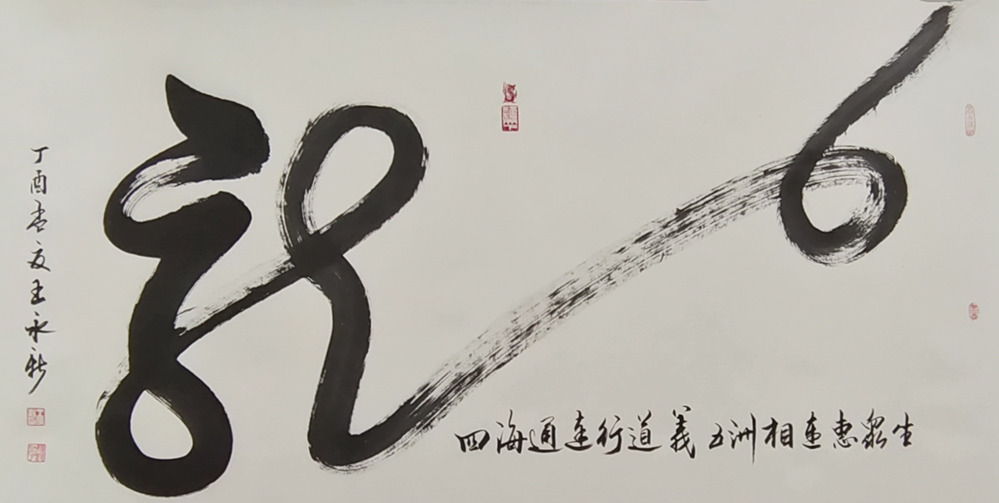 龍
四海通達行道義 五洲相連惠眾生
丁酉孟夏王永新